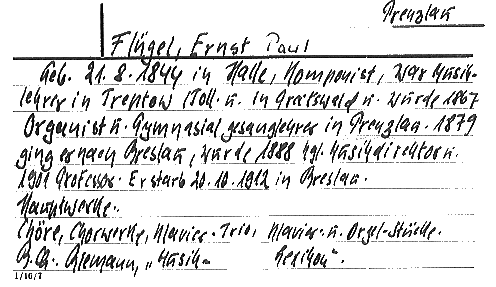 Prenzlau
Flügel, Ernst Paul
Geb. 21.8.1844 in Halle, Komponist, war Musik-
lehrer in Treptow /Toll. u. in Greifswald u. wurde 1867
Organist u. Gymnasialgesanglehrer in Prenzlau. 1879
ging er nach Breslau, wurde 1888 kgl. Musikdirektor u.
1901 Professor. Er starb 20.10.1912 in Breslau.
Hauptwerke.
Chöre, Chorwerke, Klavier-Trio, Klavier- u. Orgel-Stücke.
Riemann, „Musik-Lexikon".
1/10/7